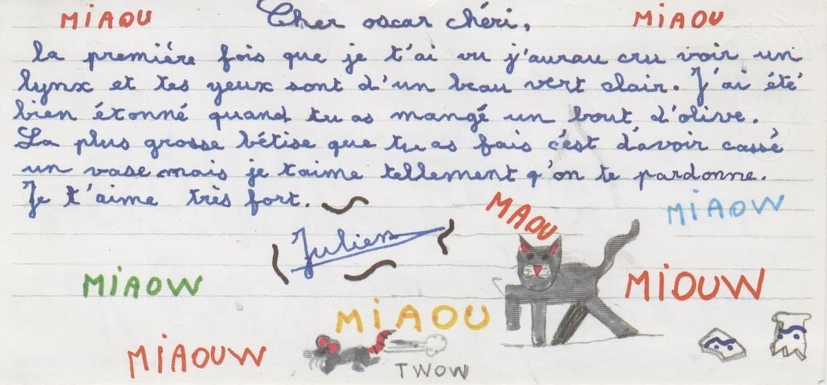 MIAOU Cher oscar chéri, MIAOU
la premiére fois que je t'ai vu j'aurau cru voir un
lynx et tes yeux sont d'un beau vert clair. J'ai été
bien étonné quand tu as mangé un bout d'olive.
La plus grosse bétise que tu as fais c'est d'avoir cassé
un vase mais je t'aime tellement q'on te pardonne.
Je t'aime très fort.
MAOU MIAOW
Julien
MIAOW MIOUW
MIAOU
MIAOUW TWOW